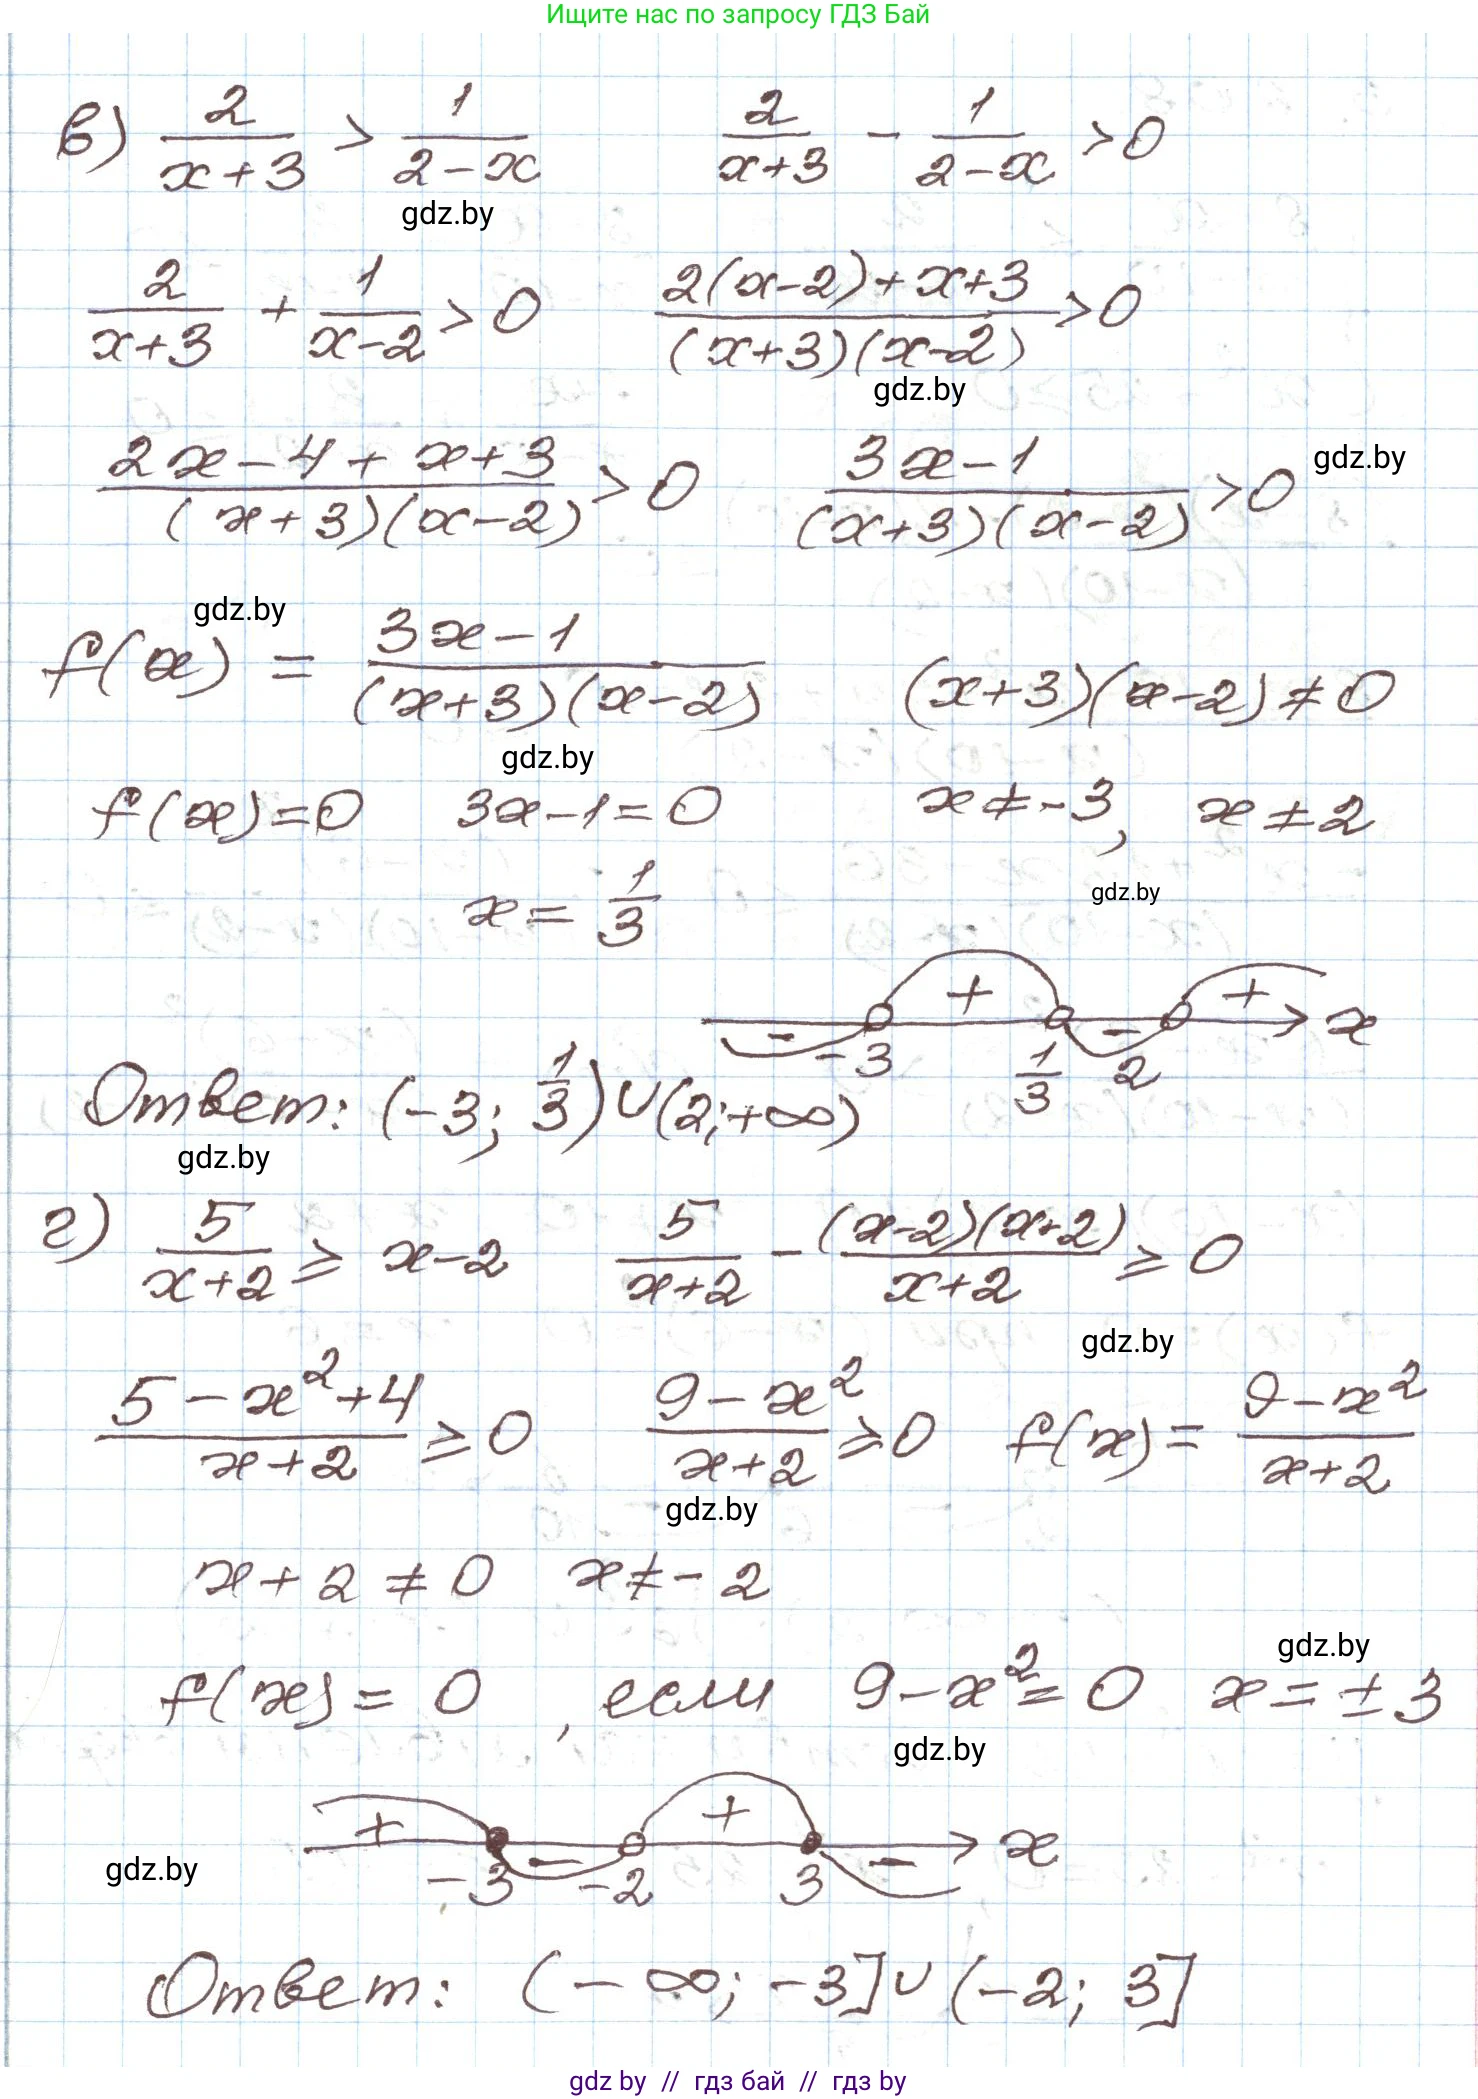 Ищите нас по запросу ГДЗ Бай
в) 2/(x+3) > 1/(2-x)    2/(x+3) - 1/(2-x) > 0
gdz.by
2/(x+3) + 1/(x-2) > 0    (2(x-2)+x+3)/((x+3)(x-2)) > 0
gdz.by
(2x-4+x+3)/((x+3)(x-2)) > 0    (3x-1)/((x+3)(x-2)) > 0    gdz.by
gdz.by
f(x) = (3x-1)/((x+3)(x-2))    (x+3)(x-2) ≠ 0
gdz.by
f(x)=0    3x-1=0    x≠-3, x≠2
x = 1/3    gdz.by
- + - + x
-3 1/3 2
Ответ: (-3; 1/3)∪(2;+∞)
gdz.by
г) 5/(x+2) ≥ x-2    5/(x+2) - ((x-2)(x+2))/(x+2) ≥ 0
gdz.by
(5-x²+4)/(x+2) ≥ 0    (9-x²)/(x+2) ≥ 0    f(x) = (9-x²)/(x+2)
gdz.by
x+2≠0    x≠-2
gdz.by
f(x)=0, если 9-x²=0    x=±3
gdz.by
+ - + - x
gdz.by    -3 -2 3
Ответ: (-∞; -3]∪(-2; 3]
gdz by // гдз бай // гдз by